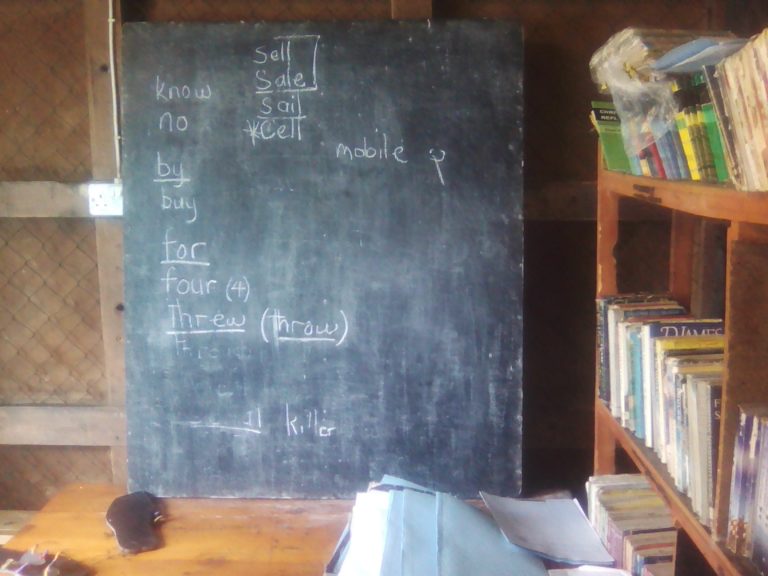 Sell
Sale
Sail
*Cell
know
no
mobile
by
buy
for
four (4)
Threw (throw)
killer
PD JAMES